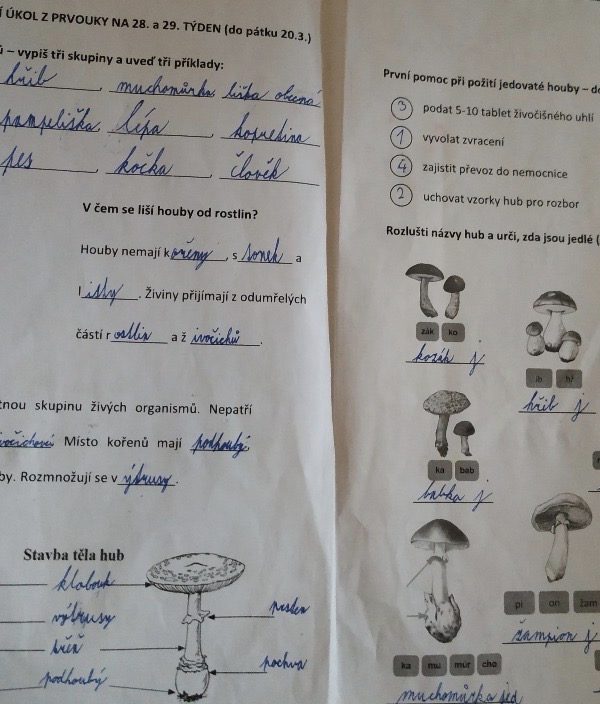 Í ÚKOL Z PRVOUKY NA 28. a 29. TÝDEN (do pátku 20.3.)
– vypiš tři skupiny a uveď tři příklady:
hřib, muchomůrka, liška obecná
pampeliška, lípa, kopretina
pes, kočka, člověk
V čem se liší houby od rostlin?
Houby nemají kořeny, stonek a
listy. Živiny přijímají z odumřelých
částí rostlin a živočichů.
tnou skupinu živých organismů. Nepatří
Místo kořenů mají podhoubý.
by. Rozmnožují se výtrusy.
Stavba těla hub
klobouk
výtrusy
prsten
třeň
pochva
podhoubý
První pomoc při požití jedovaté houby – do
3 podat 5-10 tablet živočišného uhlí
1 vyvolat zvracení
4 zajistit převoz do nemocnice
2 uchovat vzorky hub pro rozbor
Rozlušti názvy hub a urči, zda jsou jedlé (
zák ko
kozák j
ib hř
hřib j
ka bab
babka j
pi on žam
žampion j
ka mu můr cho
muchomůrka jed